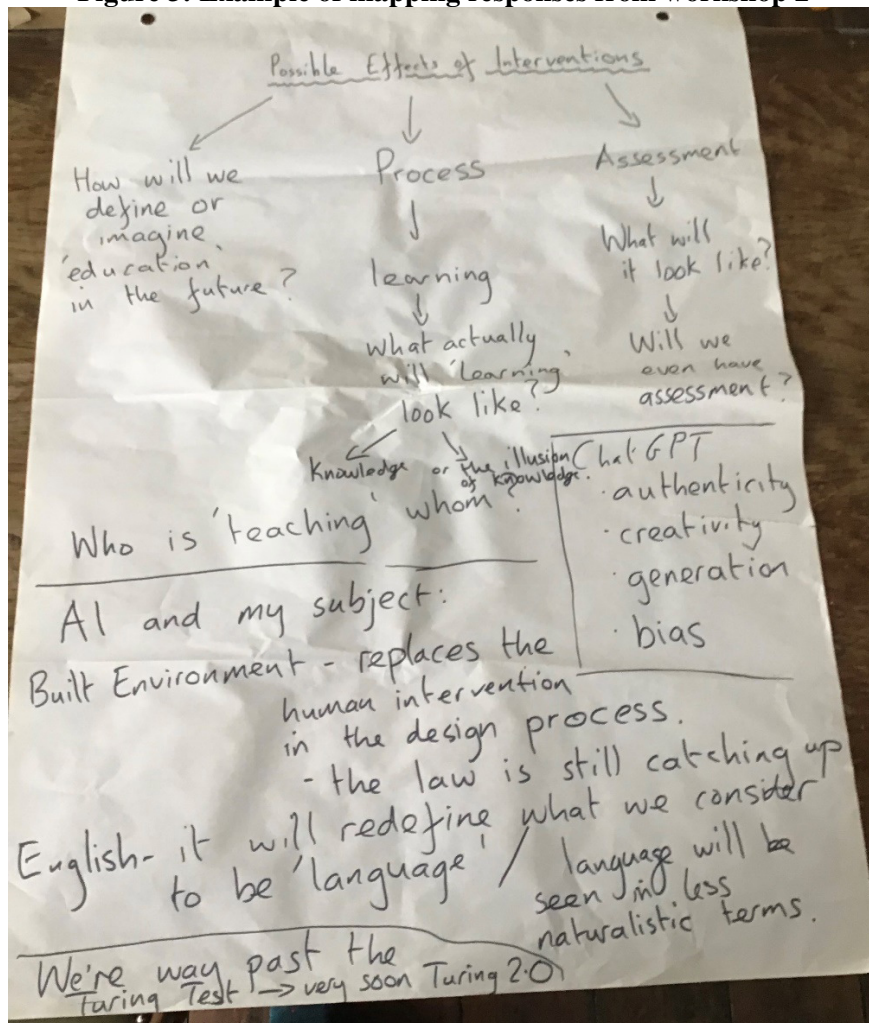 Figure 3: Example of mapping responses from workshop 2
Possible Effects of Interventions
How will we
define or
imagine
'education'
in the future?
Process
learning
What actually
will 'learning'
look like?
Knowledge or the illusion
of knowledge.
Assessment
What will
it look like?
Will we
even have
assessment?
Who is 'teaching' whom?
ChatGPT
· authenticity
· creativity
· generation
· bias
AI and my subject:
Built Environment - replaces the
human intervention
in the design process.
- the law is still catching up
English - it will redefine what we consider
to be 'language' / language will be
seen in less
naturalistic terms.
We're way past the
Turing Test → very soon Turing 2.0